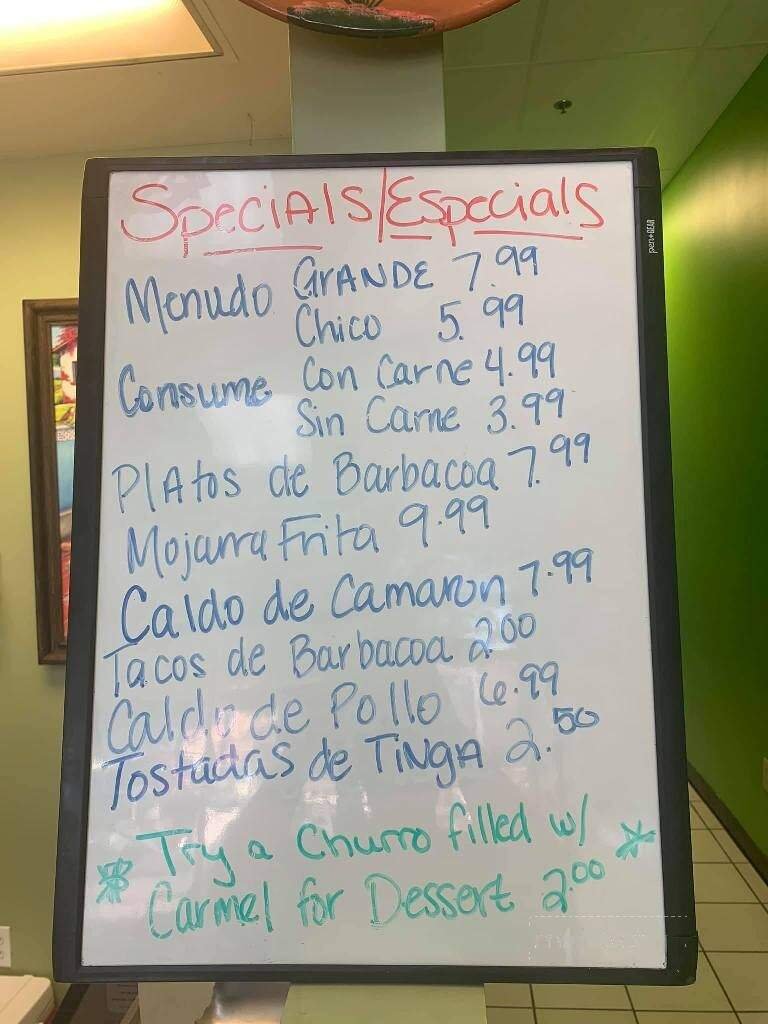 Specials/Especials
Menudo Grande 7.99
Chico 5.99
Consume Con Carne 4.99
Sin Carne 3.99
Platos de Barbacoa 7.99
Mojarra Frita 9.99
Caldo de Camaron 7.99
Tacos de Barbacoa 2.00
Caldo de Pollo 6.99
Tostadas de Tinga 2.50
Try a Churro filled w/
Carmel for Dessert 2.00